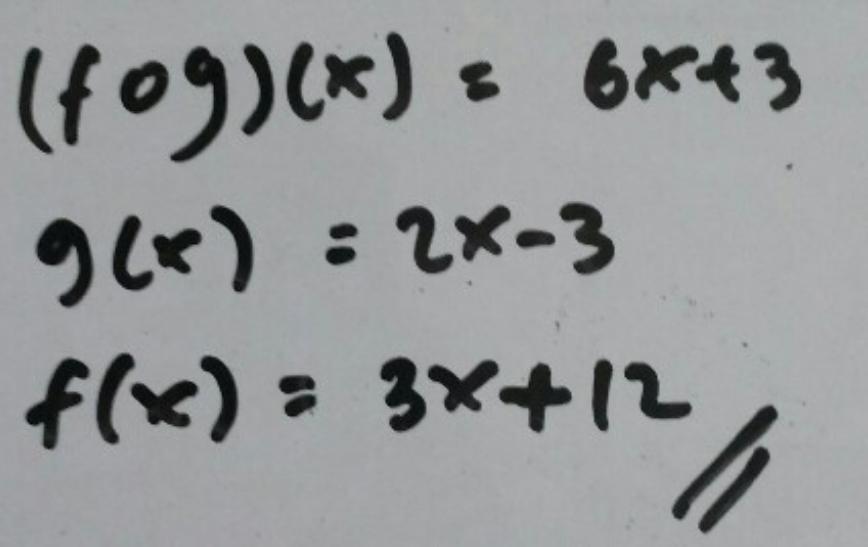 (fog)(x) = 6x+3
g(x) = 2x-3
f(x) = 3x+12 //